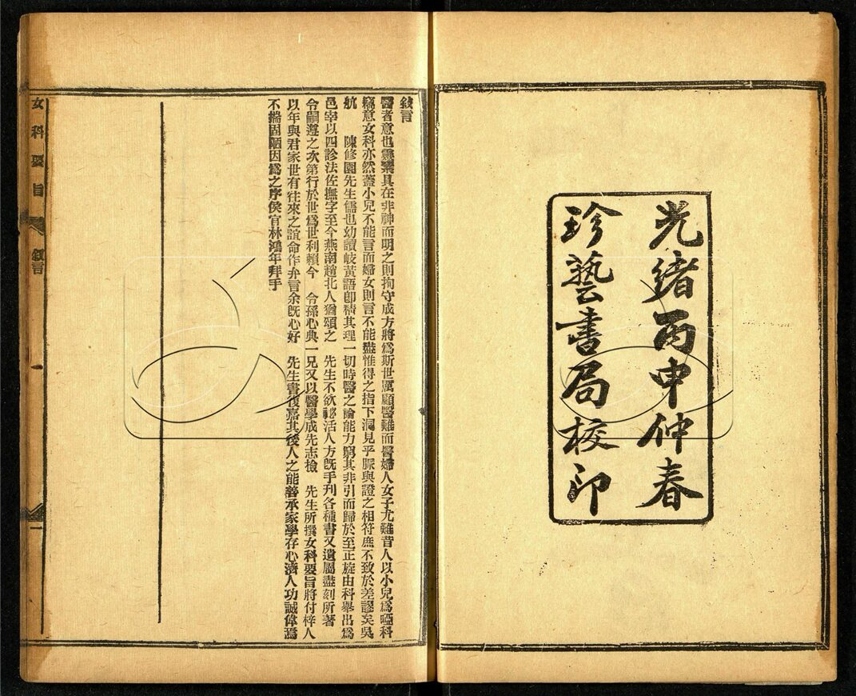 光緒丙申仲春
珍藝書局校印
敘言
醫者意也靈素具在非神而明之則拘守成方將為斯世厲顧醫難而醫婦人女子尤難昔人以小兒為啞科
竊意女科亦然蓋小兒不能言而婦女則言不能盡惟得之指下洞見乎脈與證之相符庶不致於差謬矣吳
航 陳修園先生儒也幼讀岐黃語即精其理一切時醫之論能力窮其非引而歸於至正旋由科舉出為
邑宰以四診法佐撫字至今燕南趙北人猶頌之 先生不欲祕活人方既手刊各種書又遺屬盡刻所著
令嗣遵之次第行於世為世利賴今 令孫心典一兄又以醫學成先志檢 先生所撰女科要旨將付梓人
以年與君家世有往來之誼命作弁言余既心好 先生書復嘉其後人之能善承家學存心濟人功誠偉焉
不揣固陋因為之序侯官林鴻年拜手
女科要旨 敘言 一